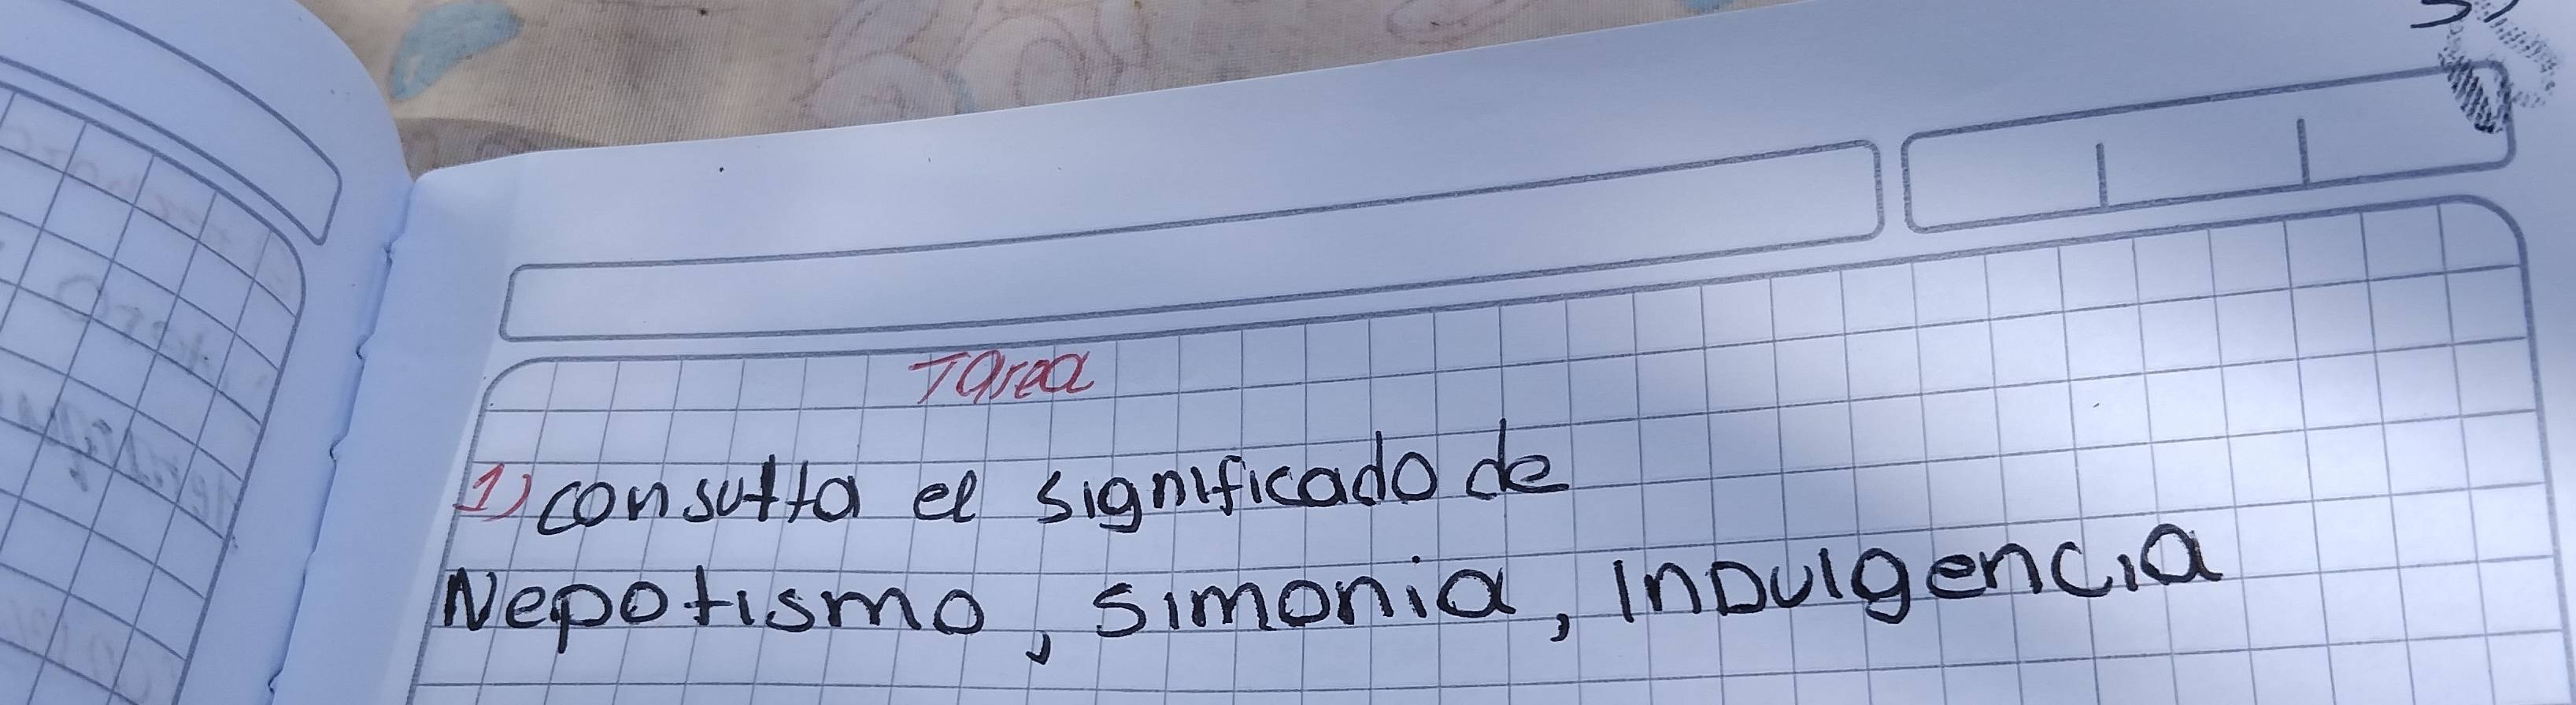 Tarea
1) consulta el significado de
Nepotismo, simonia, Indulgencia